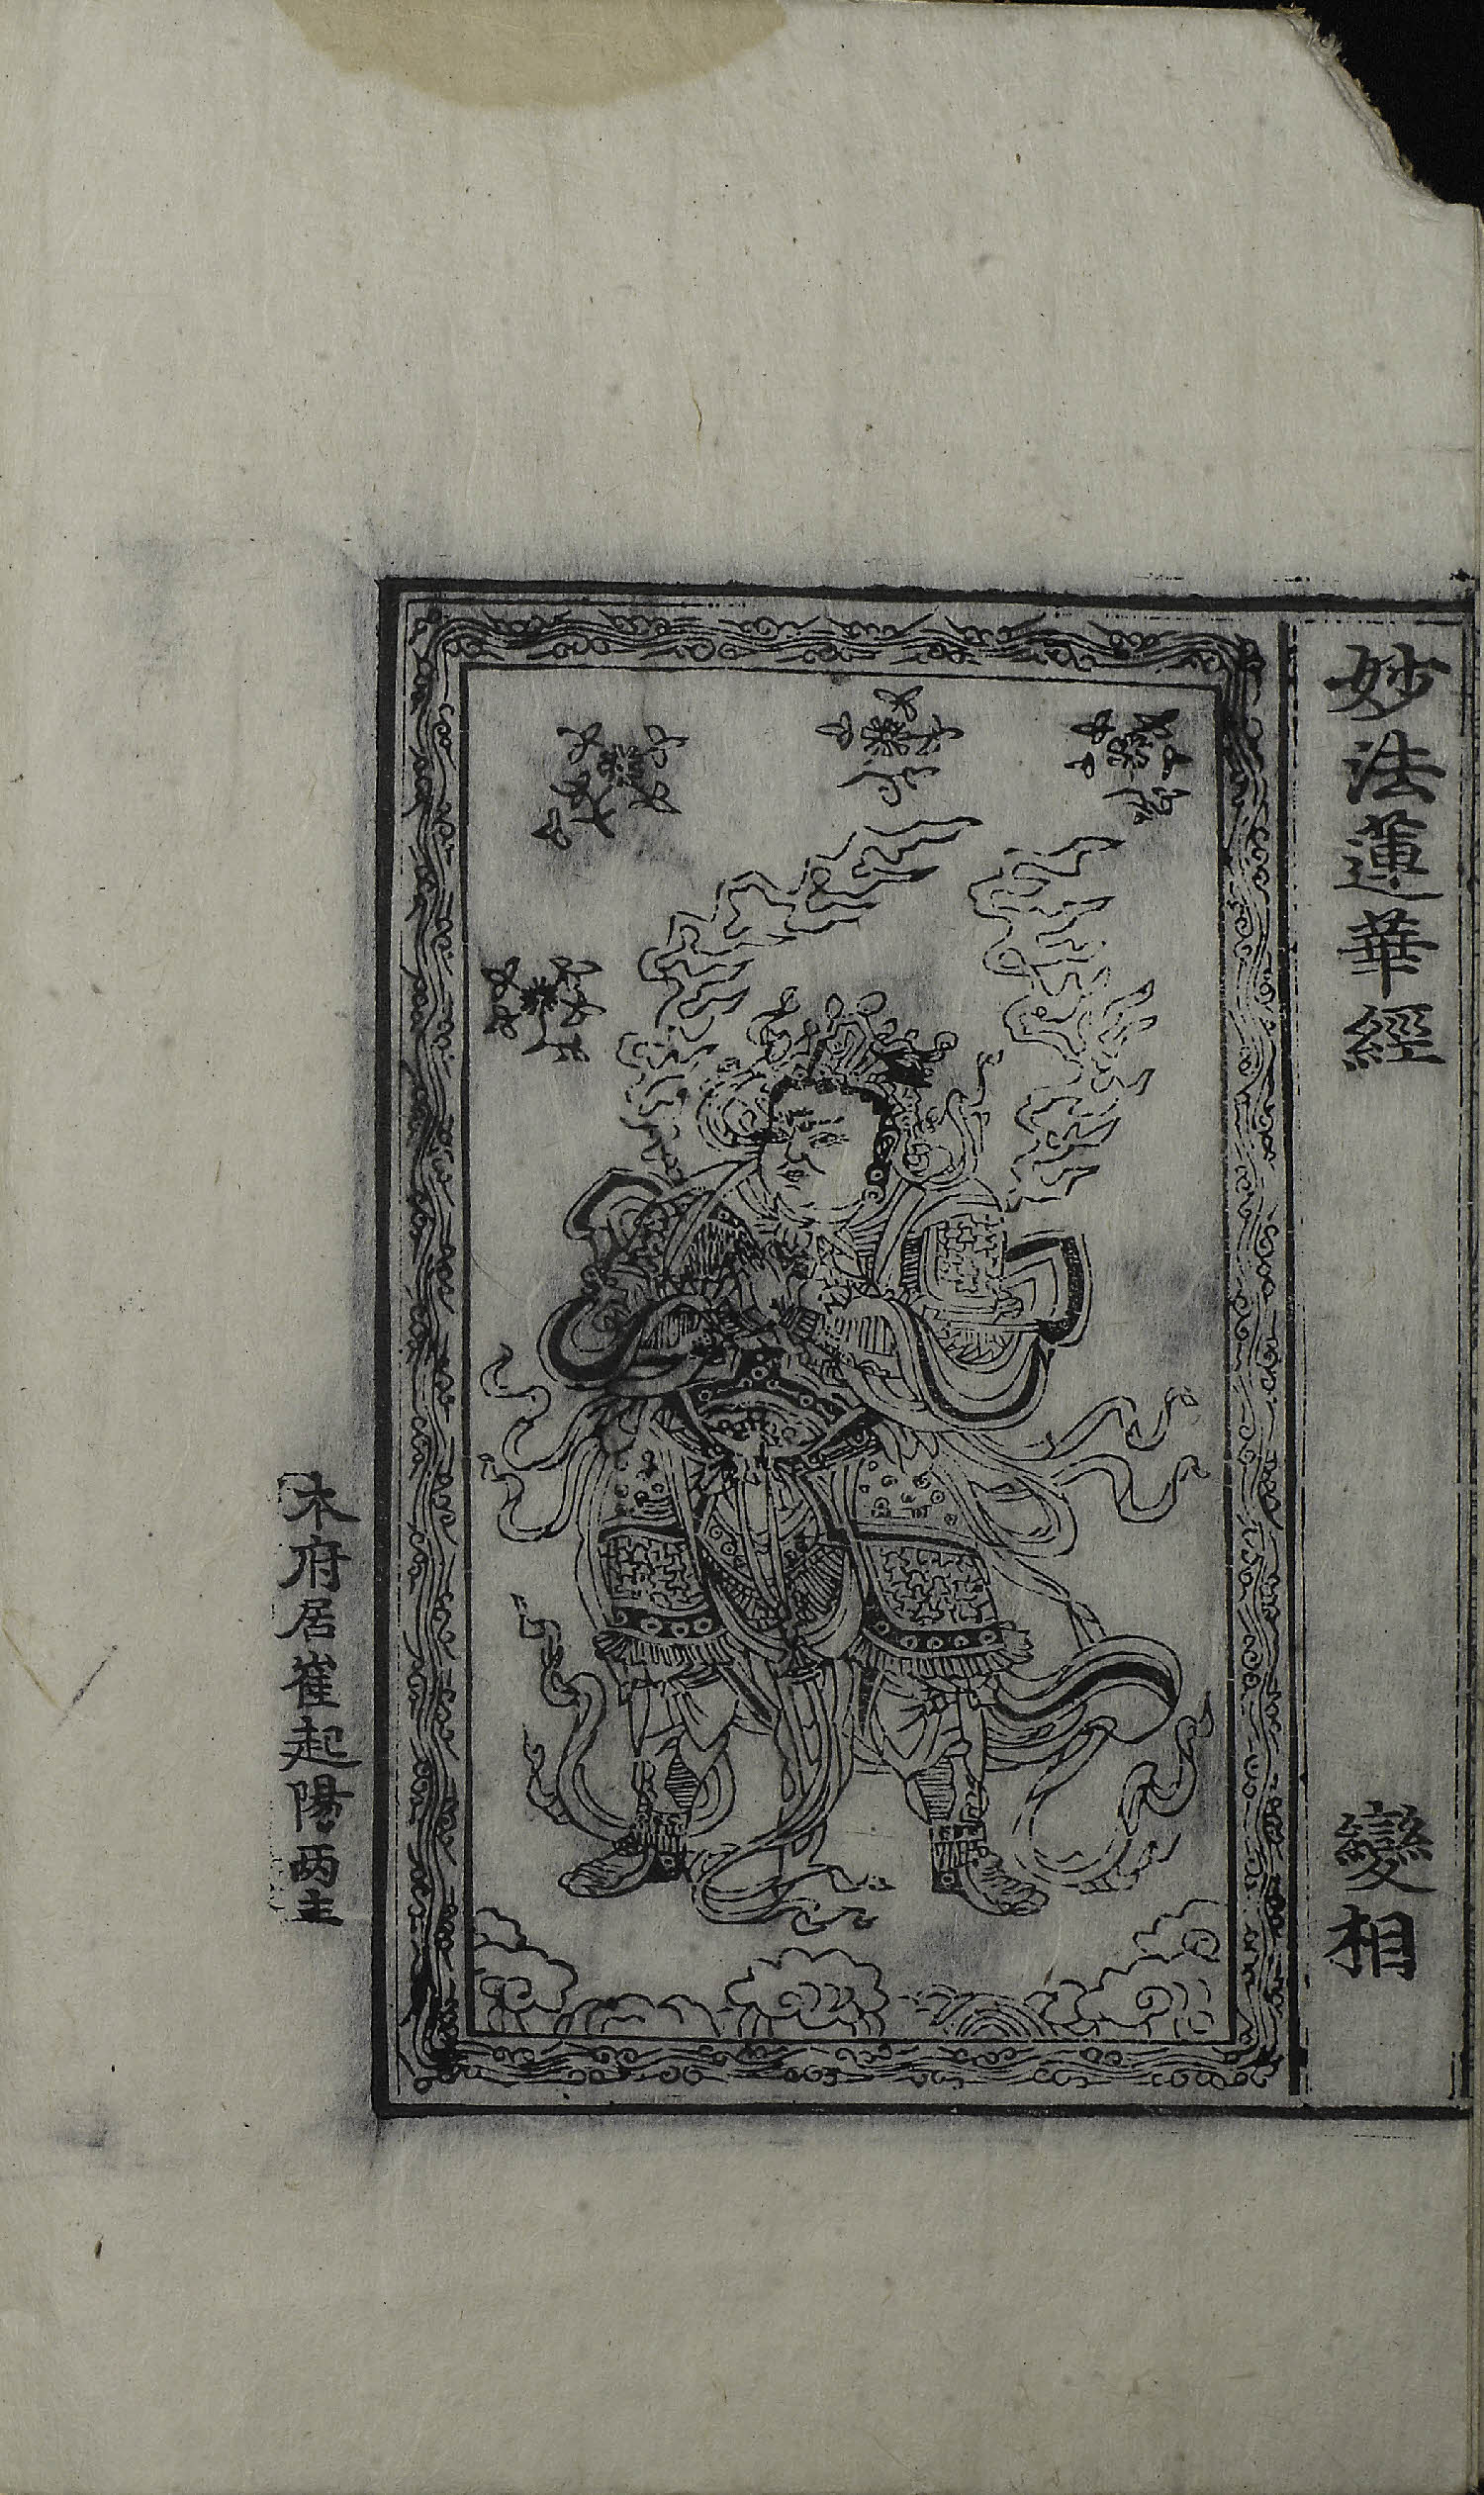 妙法蓮華經 變相
木府居崔起陽両主